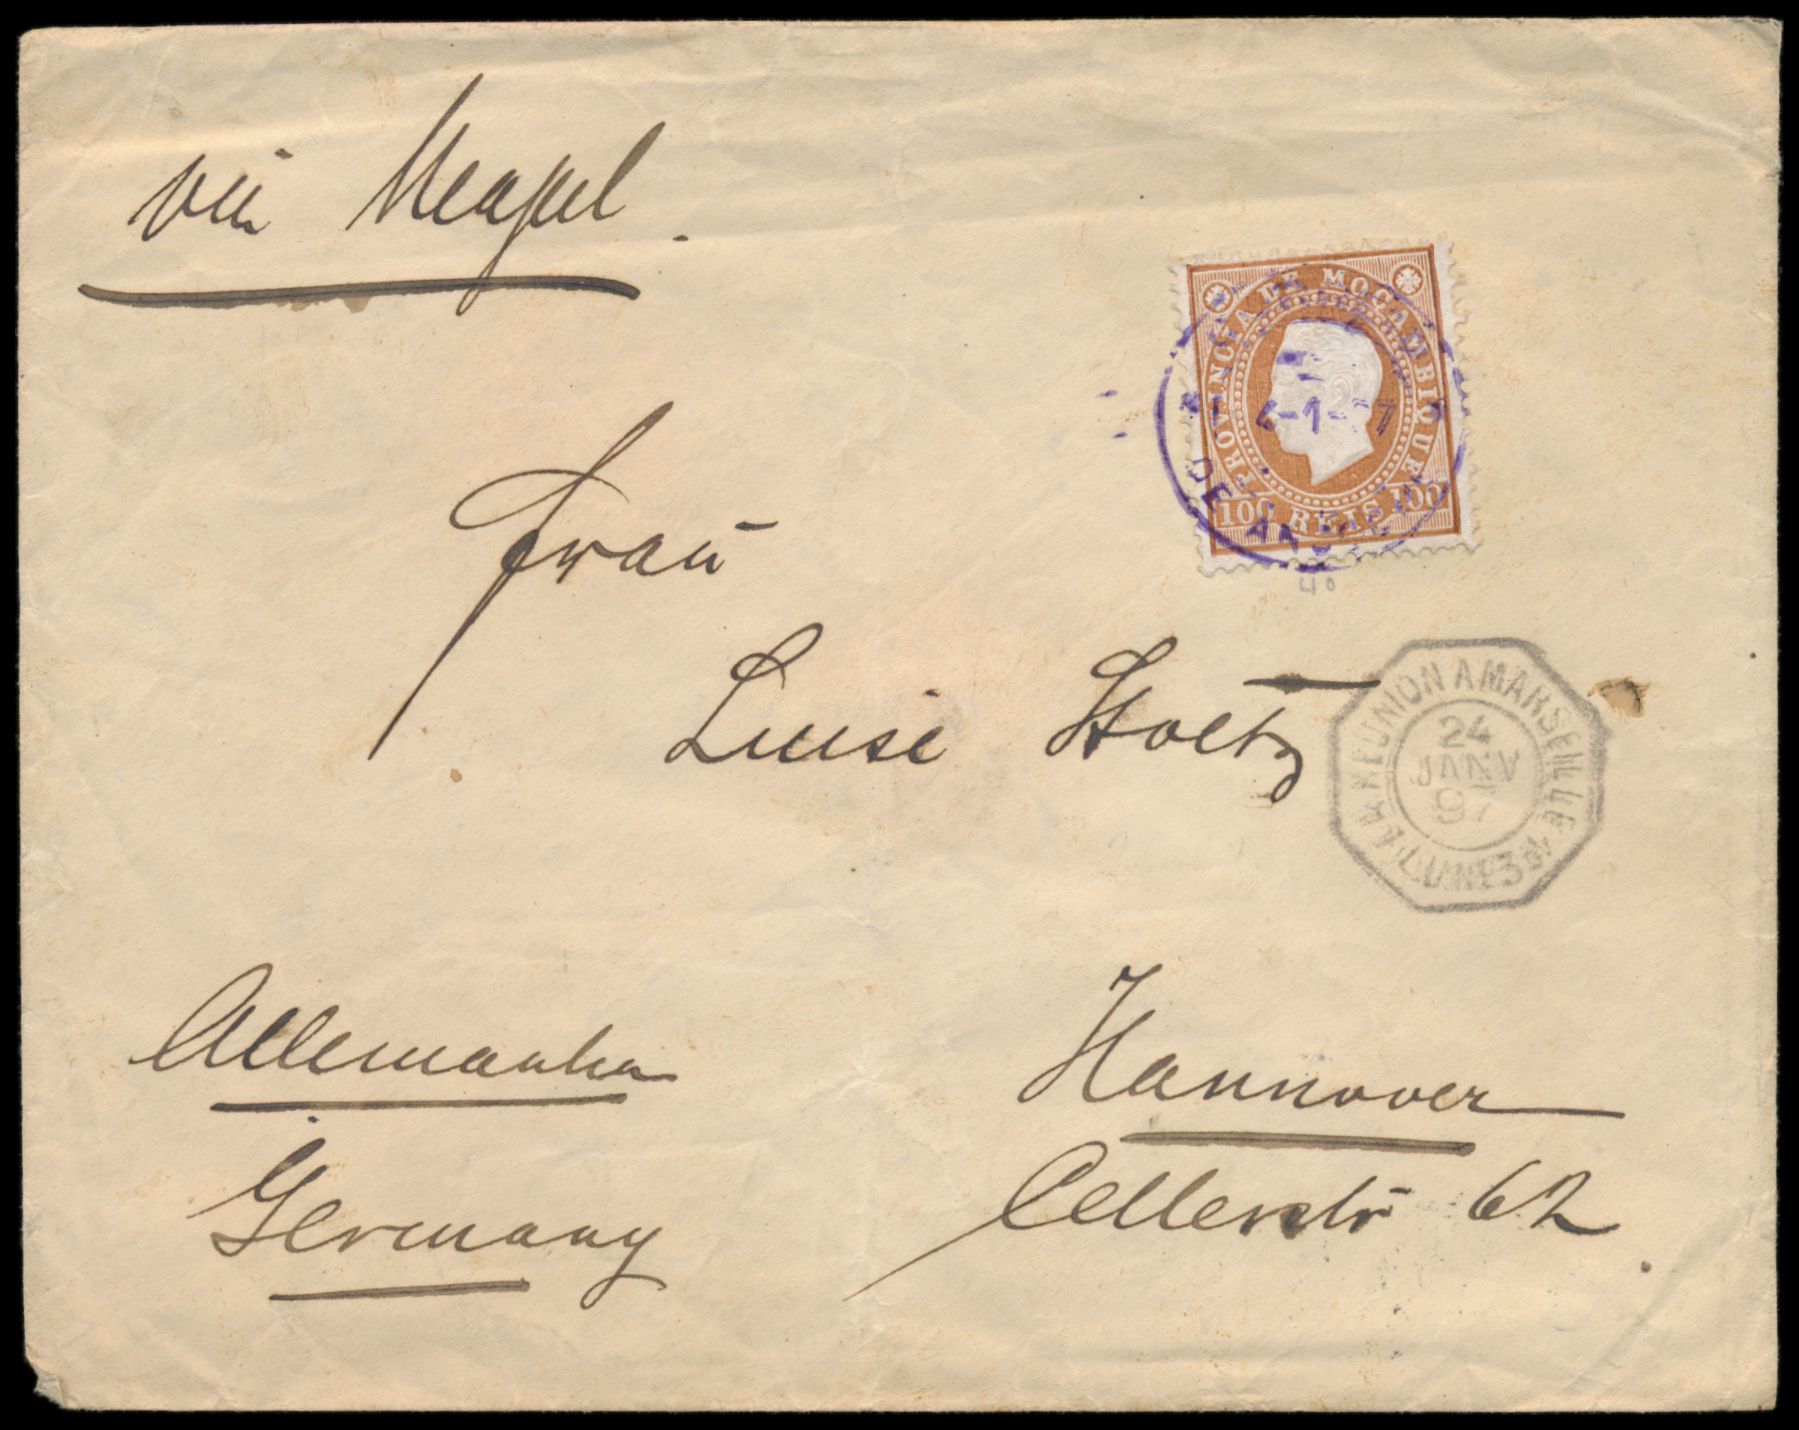 via Neapel.
PROVINCIA DE MOÇAMBIQUE
100 REIS 100
4-1-97
DE ANGOCHE
40
Frau
Luise Stoltz
LA REUNION A MARSEILLE
24
JANV
97
L.U.Nº3
Allemanha
Germany
Hannover
Cellerstr 62